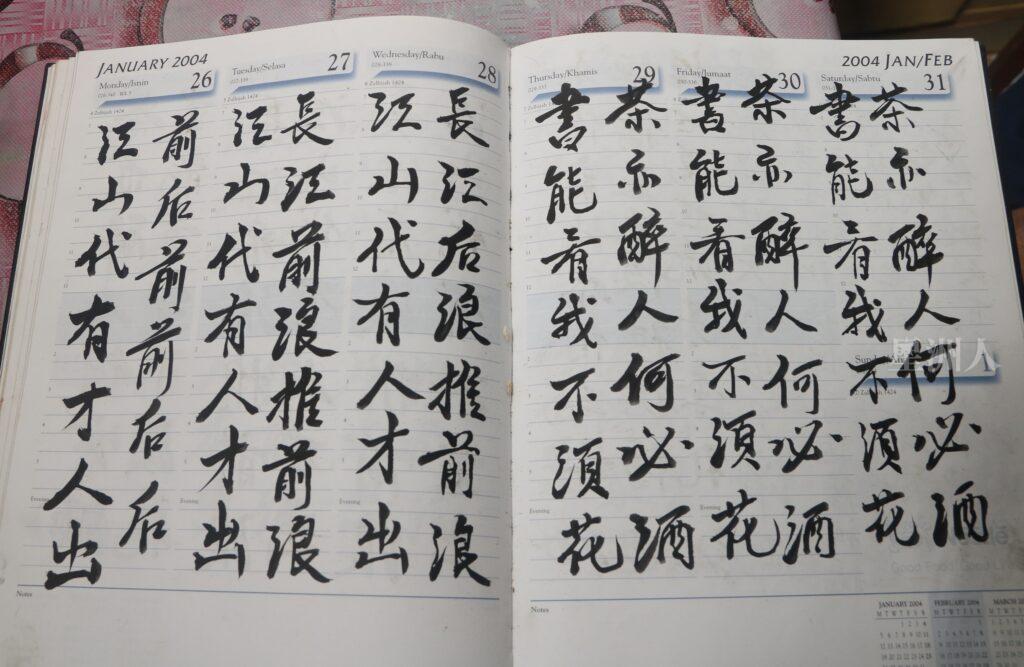 JANUARY 2004
Monday/Isnin
26
Tuesday/Selasa
27
Wednesday/Rabu
28
長江后浪推前浪
江山代有人才出
長江前浪推前浪
江山代有人才出
前后前前后后
江山代有才人出
Evening
Evening
Evening
Notes
2004 JAN/FEB
Thursday/Khamis
29
Friday/Jumaat
30
Saturday/Sabtu
31
茶亦醉人何必酒
書能香我不須花
茶亦醉人何必酒
書能香我不須花
茶亦醉人何必酒
書能香我不須花
星洲人
Evening
Evening
Notes
JANUARY 2004
FEBRUARY 2004